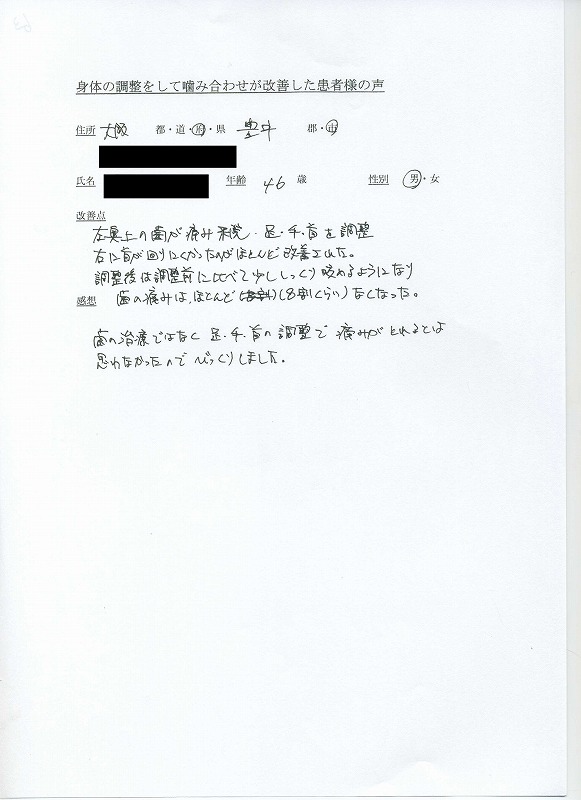 身体の調整をして噛み合わせが改善した患者様の声
住所 大阪 都・道・府・県 豊中 郡・市
氏名 年齢 46 歳 性別 男・女
改善点
左奥上の歯が痛み来院. 足・手・首を調整
右に首が回りにくかったのがほとんど改善された。
調整後は調整前に比べて少ししっくり咬めるようになり
感想 歯の痛みは、ほとんど(8割くらい)なくなった。
歯の治療ではなく 足・手・首の調整で 痛みがとれるとは
思わなかったので びっくりしました。